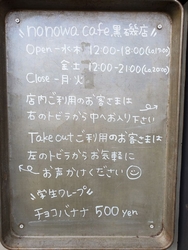 nonowa cafe.黒磯店
Open-水木 12:00-18:00(Lo17:00)
金土 12:00-21:00(Lo20:00)
Close-月火
店内ご利用のお客さまは
右のトビラから中へお入り下さい
Take outご利用のお客さまは
左のトビラからお気軽に
お声がけください
学生クレープ
チョコバナナ 500yen